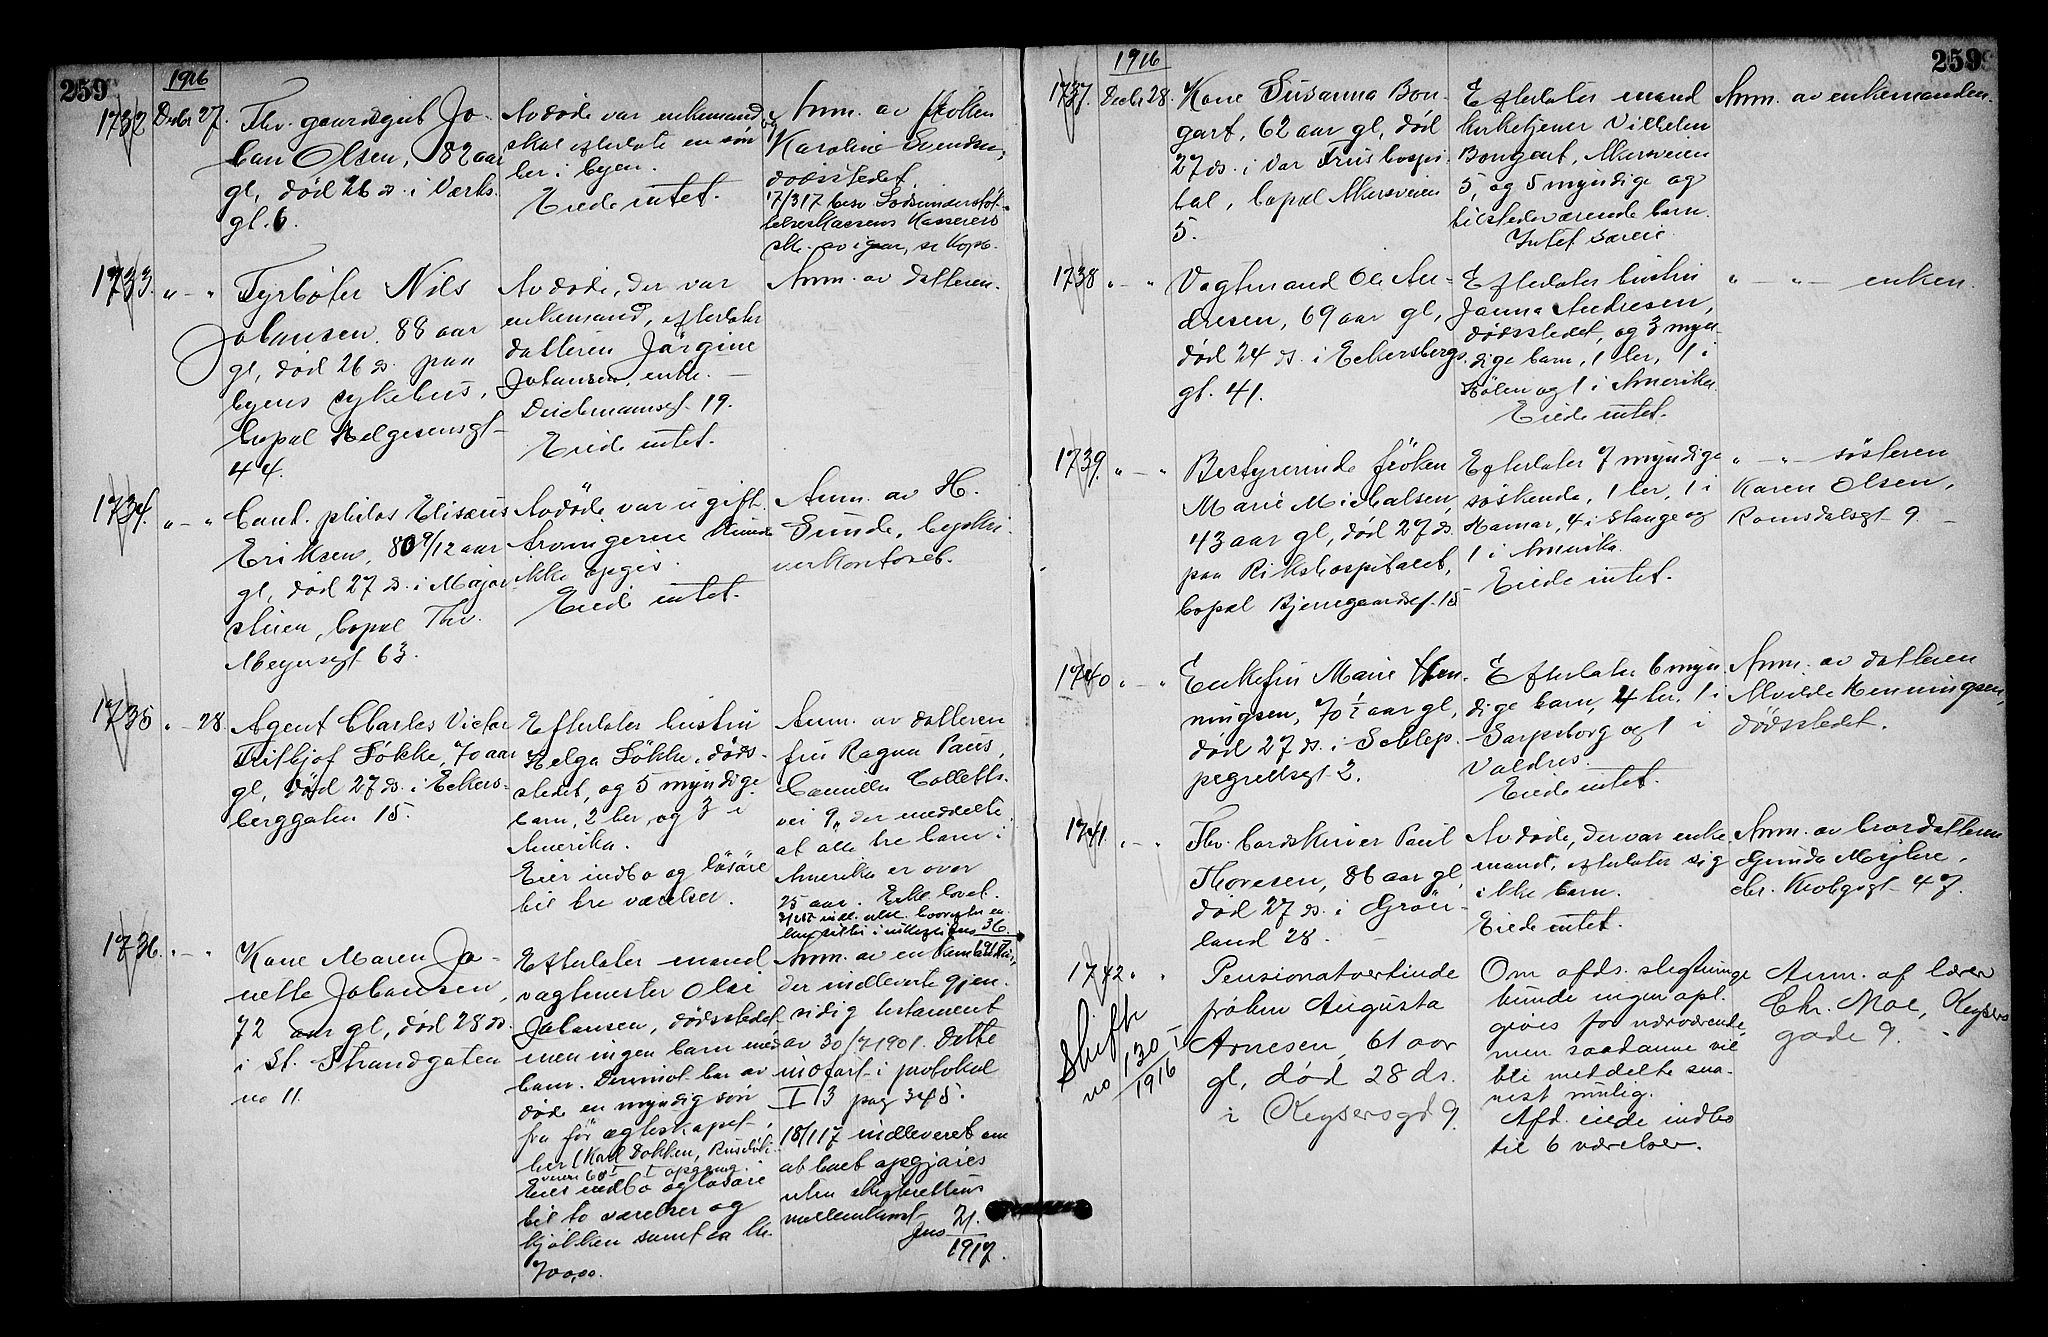 259
1916
1732 Decbr 27.
Fhv. gaardsgut Jo-
han Olsen, 82 aar
gl, död 26 ds. i Verks-
gt. 6.
Avdöde var enkemand og
skal efterlate en sön
her i byen.
Eiede intet.
Anm. av fröken
Karoline Svendsen,
dödsstedet.
17/3 17
av igaar, se Kopb.
1733. " - "
Fyrböter Nils
Johansen, 88 aar
gl, död 26 ds. paa
byens sykehus,
bopæl Helgesensgt
44.
Avdöde, der var
enkemand, efterlater
datteren Jörgine
Johansen, enke. -
Deichmannsgt. 19.
Eiede intet.
Anm. av datteren.
1734. " - "
Cand. philos Elisæus
Eriksen, 80 9/12 aar
gl, död 27 ds. i Major-
stuen, bopæl Thv.
Meyersgt 63.
Avdöde var ugift.
Arvingerne kunde
ikke opgis.
Eiede intet.
Anm. av H.
Sunde, byskri-
verkontoret.
1735 " - 28
Agent Charles Victor
Fritjof Lökke, 70 aar
gl, död 27 ds. i Eckers-
berggaten 15.
Efterlater hustru
Helga Lökke, döds-
stedet, og 5 myndige
barn, 2 her, og 3 i
Amerika.
Eier indbo og lösöre
til tre værelser.
Anm. av datteren
fru Ragna Paus,
Camilla Colletts-
vei 9, der meddelte
at alle tre barn i
Amerika er over
25 aar.
36.
1736. " - "
Kone Maren Jo-
nette Johansen,
72 aar gl, död 28 ds.
i St. Strandgaten
no 11.
Efterlater mand
vagtmester Olai
Johansen, dödsstedet
men ingen barn med
ham. Derimot har av-
döde en myndig sön
fra för egteskapet,
her (Karl Dokken,
opgang.
Eier indbo og lösöre
til to værelser og
kjökken samt ca kr.
700,00.
Anm. av en
der indleverte gjen-
sidig testament
av 30/7 1901. Dette
indfört i protokol
I 3 pag 345.
18/1 17 indleveret an
at boet opgjöres
uten skifterettens
mellemkomst
Jns 21.
1917.
259
1916
1737. Decbr 28.
Kone Susanna Bon-
gart, 62 aar gl, död
27 ds. i Vor Frues hospi-
tal, bopæl Akersveien
5.
Efterlater mand
kirketjener Vilhelm
Bongart, Akersveien
5, og 5 myndige og
tilstedeværende barn.
Intet særeie.
Anm. av enkemanden.
1738 " - "
Vagtmand Ole An-
dresen, 69 aar gl,
död 24 ds. i Eckersbergs-
gt. 41.
Efterlater hustru
Janna Andresen,
dödsstedet, og 3 myn-
dige barn, 1 her, 1 i
Hölen og 1 i Amerika.
Eiede intet.
" - " - enken.
1739. " - "
Bestyrerinde fröken
Marie Michalsen,
43 aar gl, död 27 ds.
paa Rikshospitalet,
bopæl Bjerregaardsgt. 15
Efterlater 7 myndige
söskende, 1 her, 1 i
Hamar, 4 i Stange og
1 i Amerika.
Eiede intet.
" - " - sösteren
Karen Olsen,
Romsdalsgt 9 -
1740 " - "
Enkefru Marie Hen-
ningsen, 70 1/2 aar gl,
död 27 ds. i Schlep-
pegrellsgt 2.
Efterlater 6 myn-
dige barn, 4 her, 1 i
Sarpsborg og 1 i
Valdres.
Eiede intet.
Anm. av datteren
Alvilde Henningsen,
dödsstedet.
1741. " - "
Fhv. bordskriver Paul
Thoresen, 86 aar gl,
död 27 ds. i Grön-
land 28. -
Avdöde, der var enke-
mand, efterlater sig
ikke barn.
Eiede intet.
Anm. av brordatteren
Gunda Myhre,
chr. Krohgsgt 47.
1742 " "
Skifte
no 130 I
1916
Pensionatvertinde
fröken Augusta
Arnesen, 61 aar
gl, död 28 ds.
i Keysersgd 9.
Om afds. slegtninge
kunde ingen opl.
gives for nærværende,
men saadanne vil
bli meddelte sna-
rest mulig.
Afd. eiede indbo
til 6 værelser.
Anm. af lærer
Chr. Moe, Keysers
gade 9.